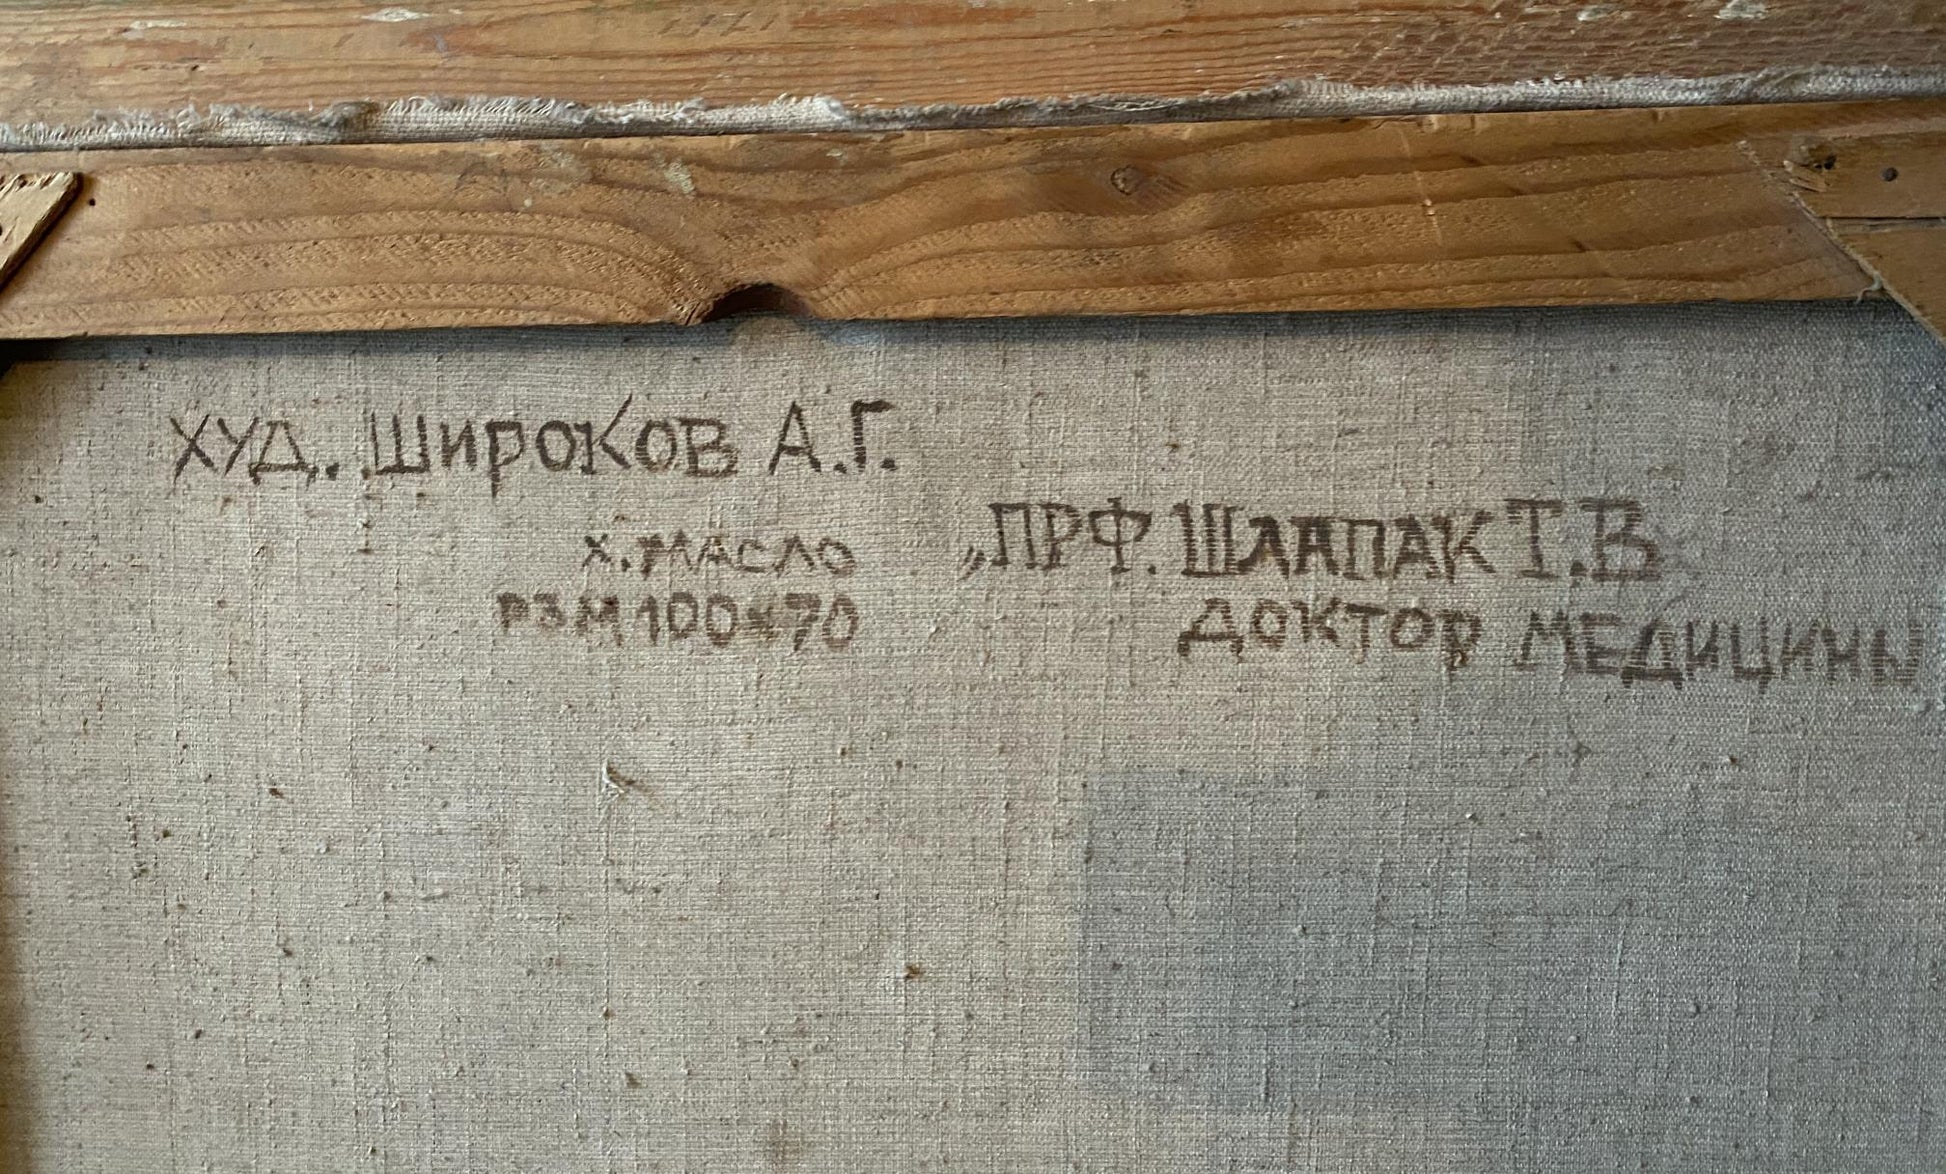 ХУД. ШИРОКОВ А.Г.
Х. МАСЛО
РЗМ 100×70
„ПРФ. ШЛАПАК Т.В
ДОКТОР МЕДИЦИНЫ